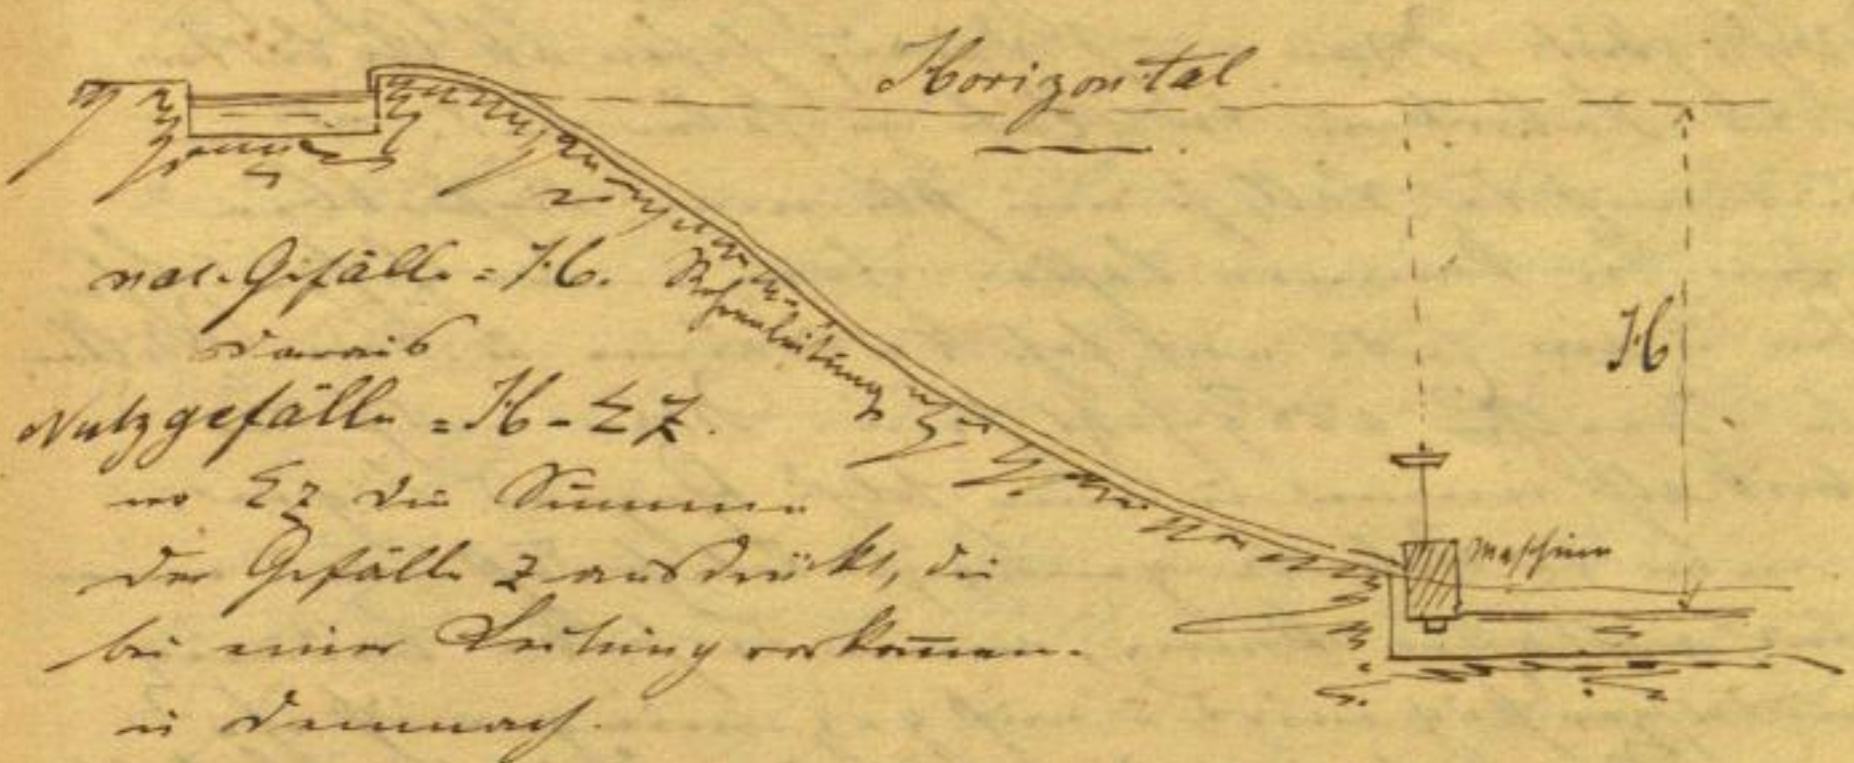 Horizontal
nat. Gefälle = H.
Rohrenleitung
daraus
H
Nutzgefälle = H - Σ Z.
wo Σ z die Summe
Maschine
der Gefälle z ausdrückt, die
bei einer Leitung vorkom̅en.
u demnach.